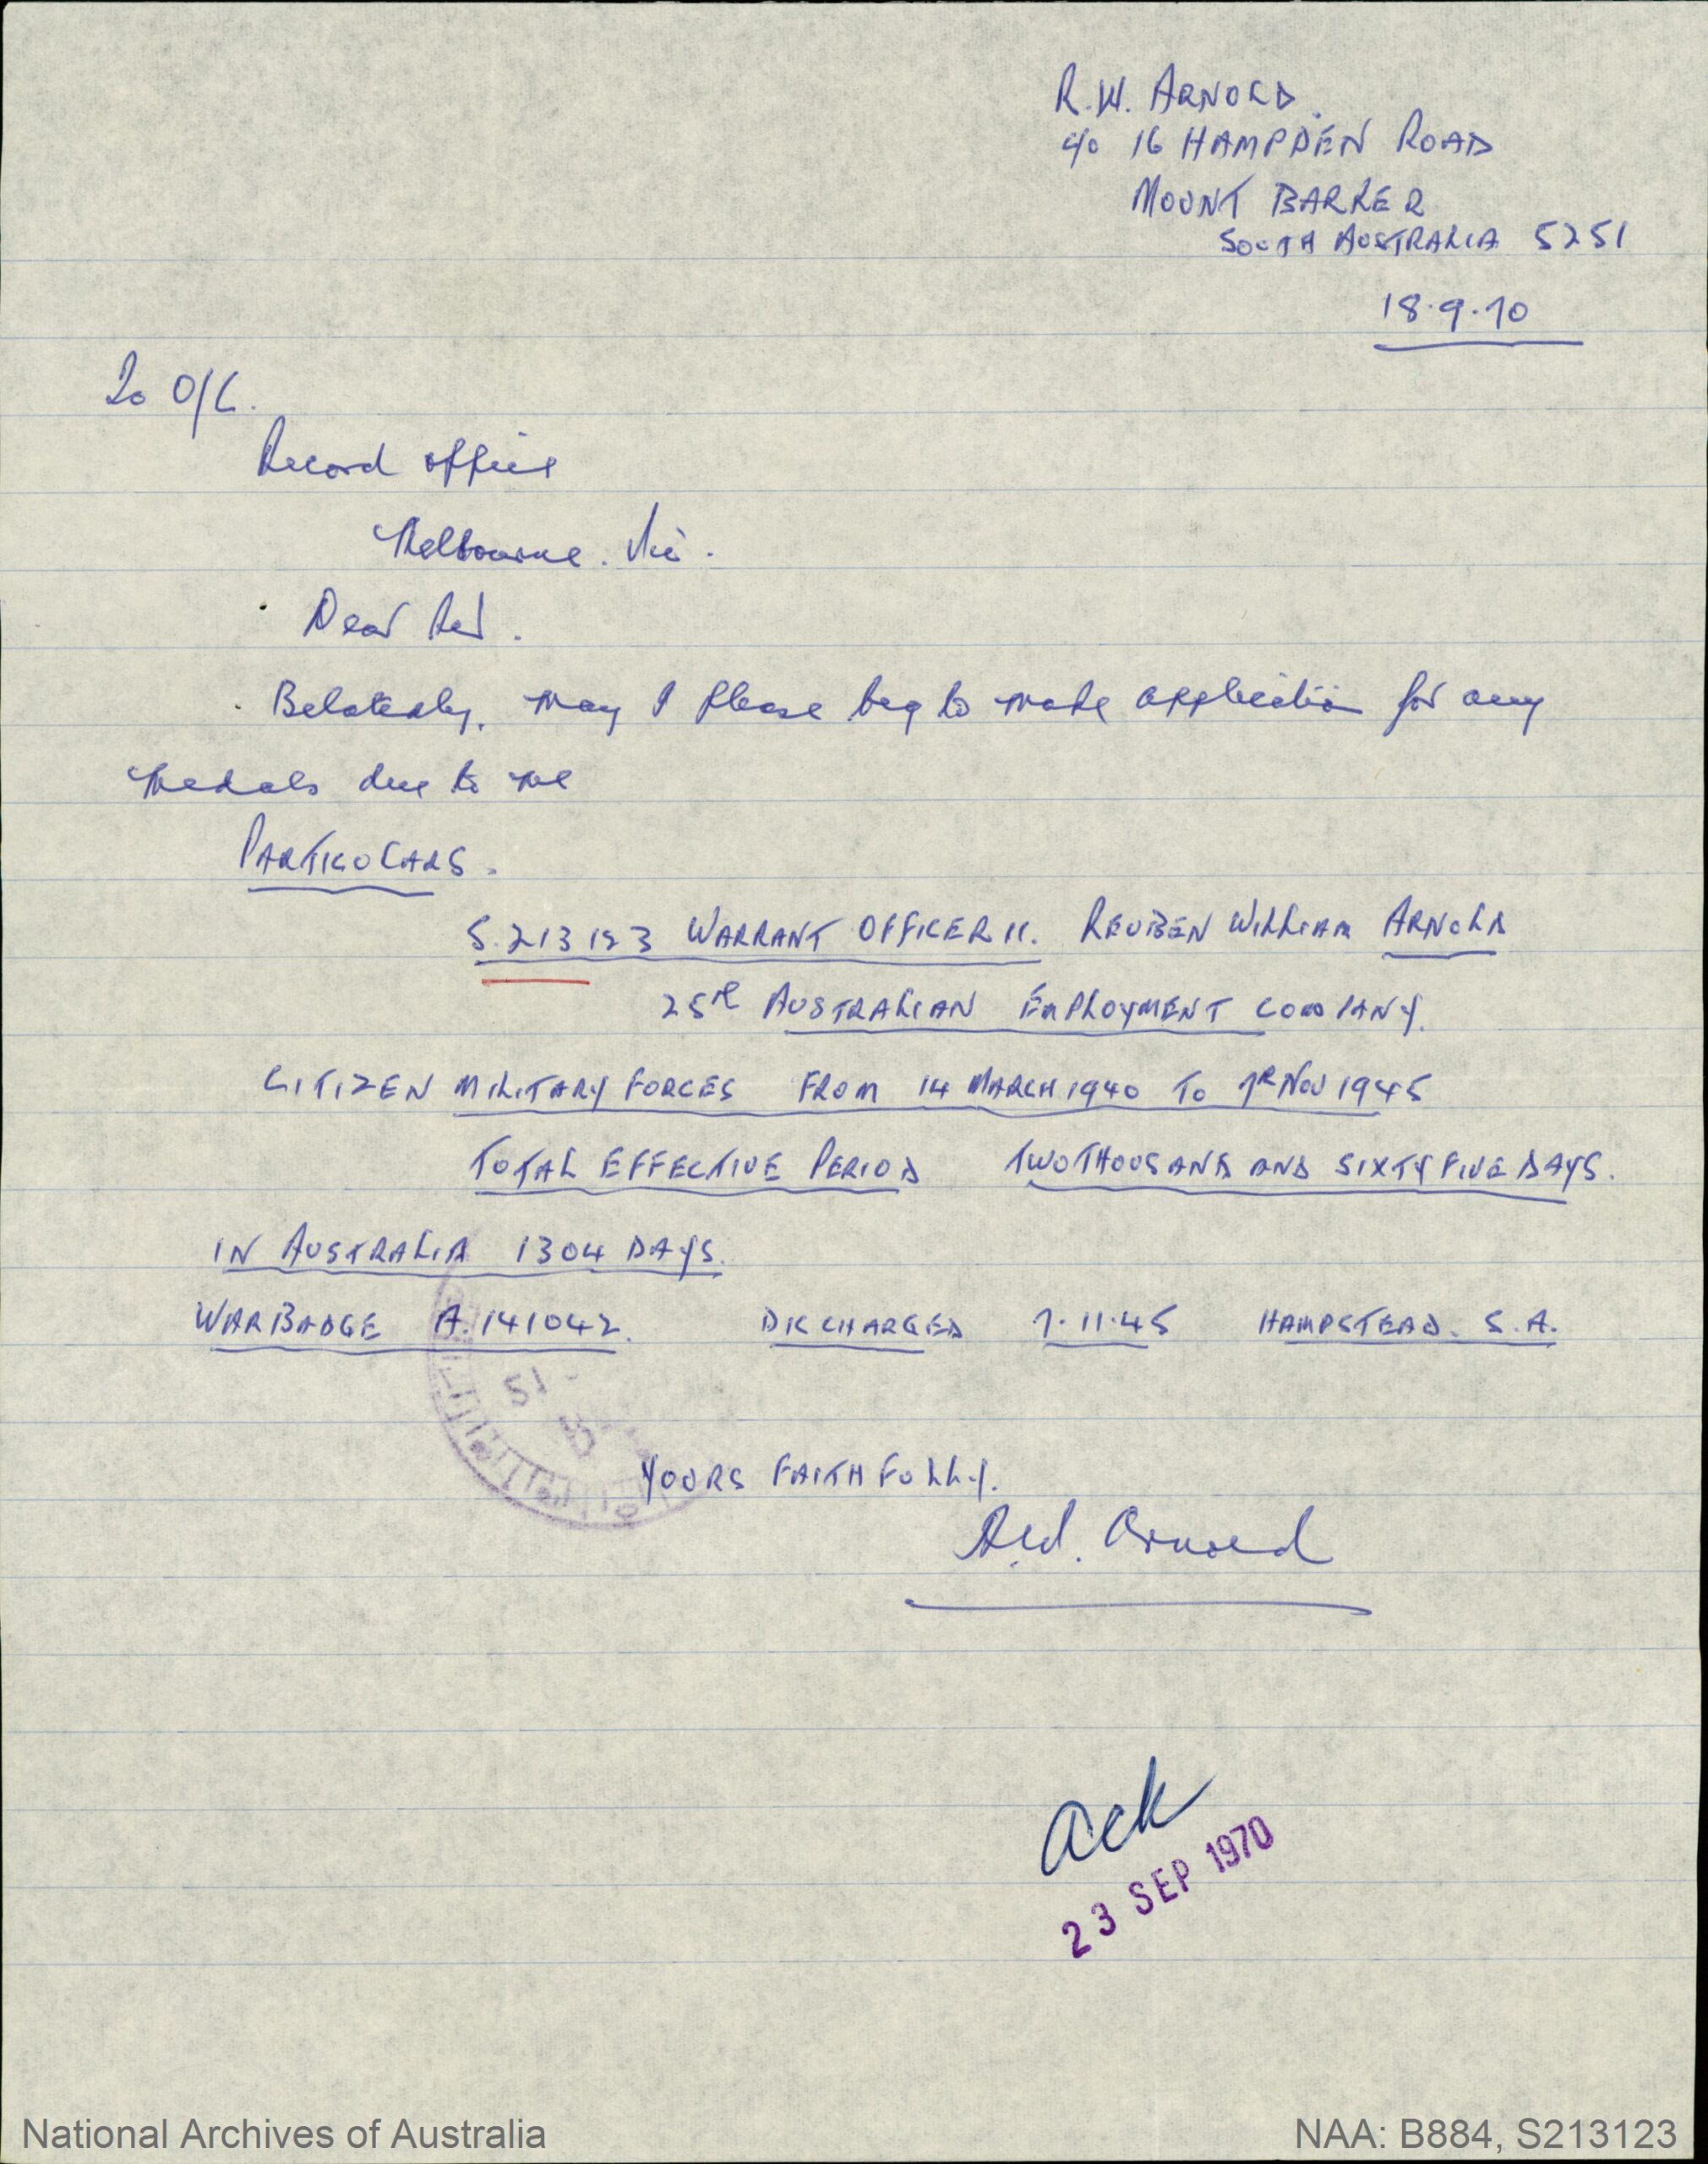 R.W. ARNOLD.
c/o 16 HAMPDEN ROAD
MOUNT BARKER
SOUTH AUSTRALIA 5251
18.9.70
To O/C.
Record office
Melbourne. Vic.
Dear Sir.
Belatedly, may I please beg to make application for any
medals due to me
PARTICULARS.
S.213123 WARRANT OFFICER II. REUBEN WILLIAM ARNOLD
25th AUSTRALIAN EMPLOYMENT COMPANY.
CITIZEN MILITARY FORCES FROM 14 MARCH 1940 TO 7th NOV 1945
TOTAL EFFECTIVE PERIOD TWO THOUSAND AND SIXTY FIVE DAYS.
IN AUSTRALIA 1304 DAYS.
WAR BADGE A.141042. DISCHARGED 7.11.45 HAMPSTEAD. S.A.
YOURS FAITHFULLY.
Arnold
ack
23 SEP 1970
National Archives of Australia
NAA: B884, S213123